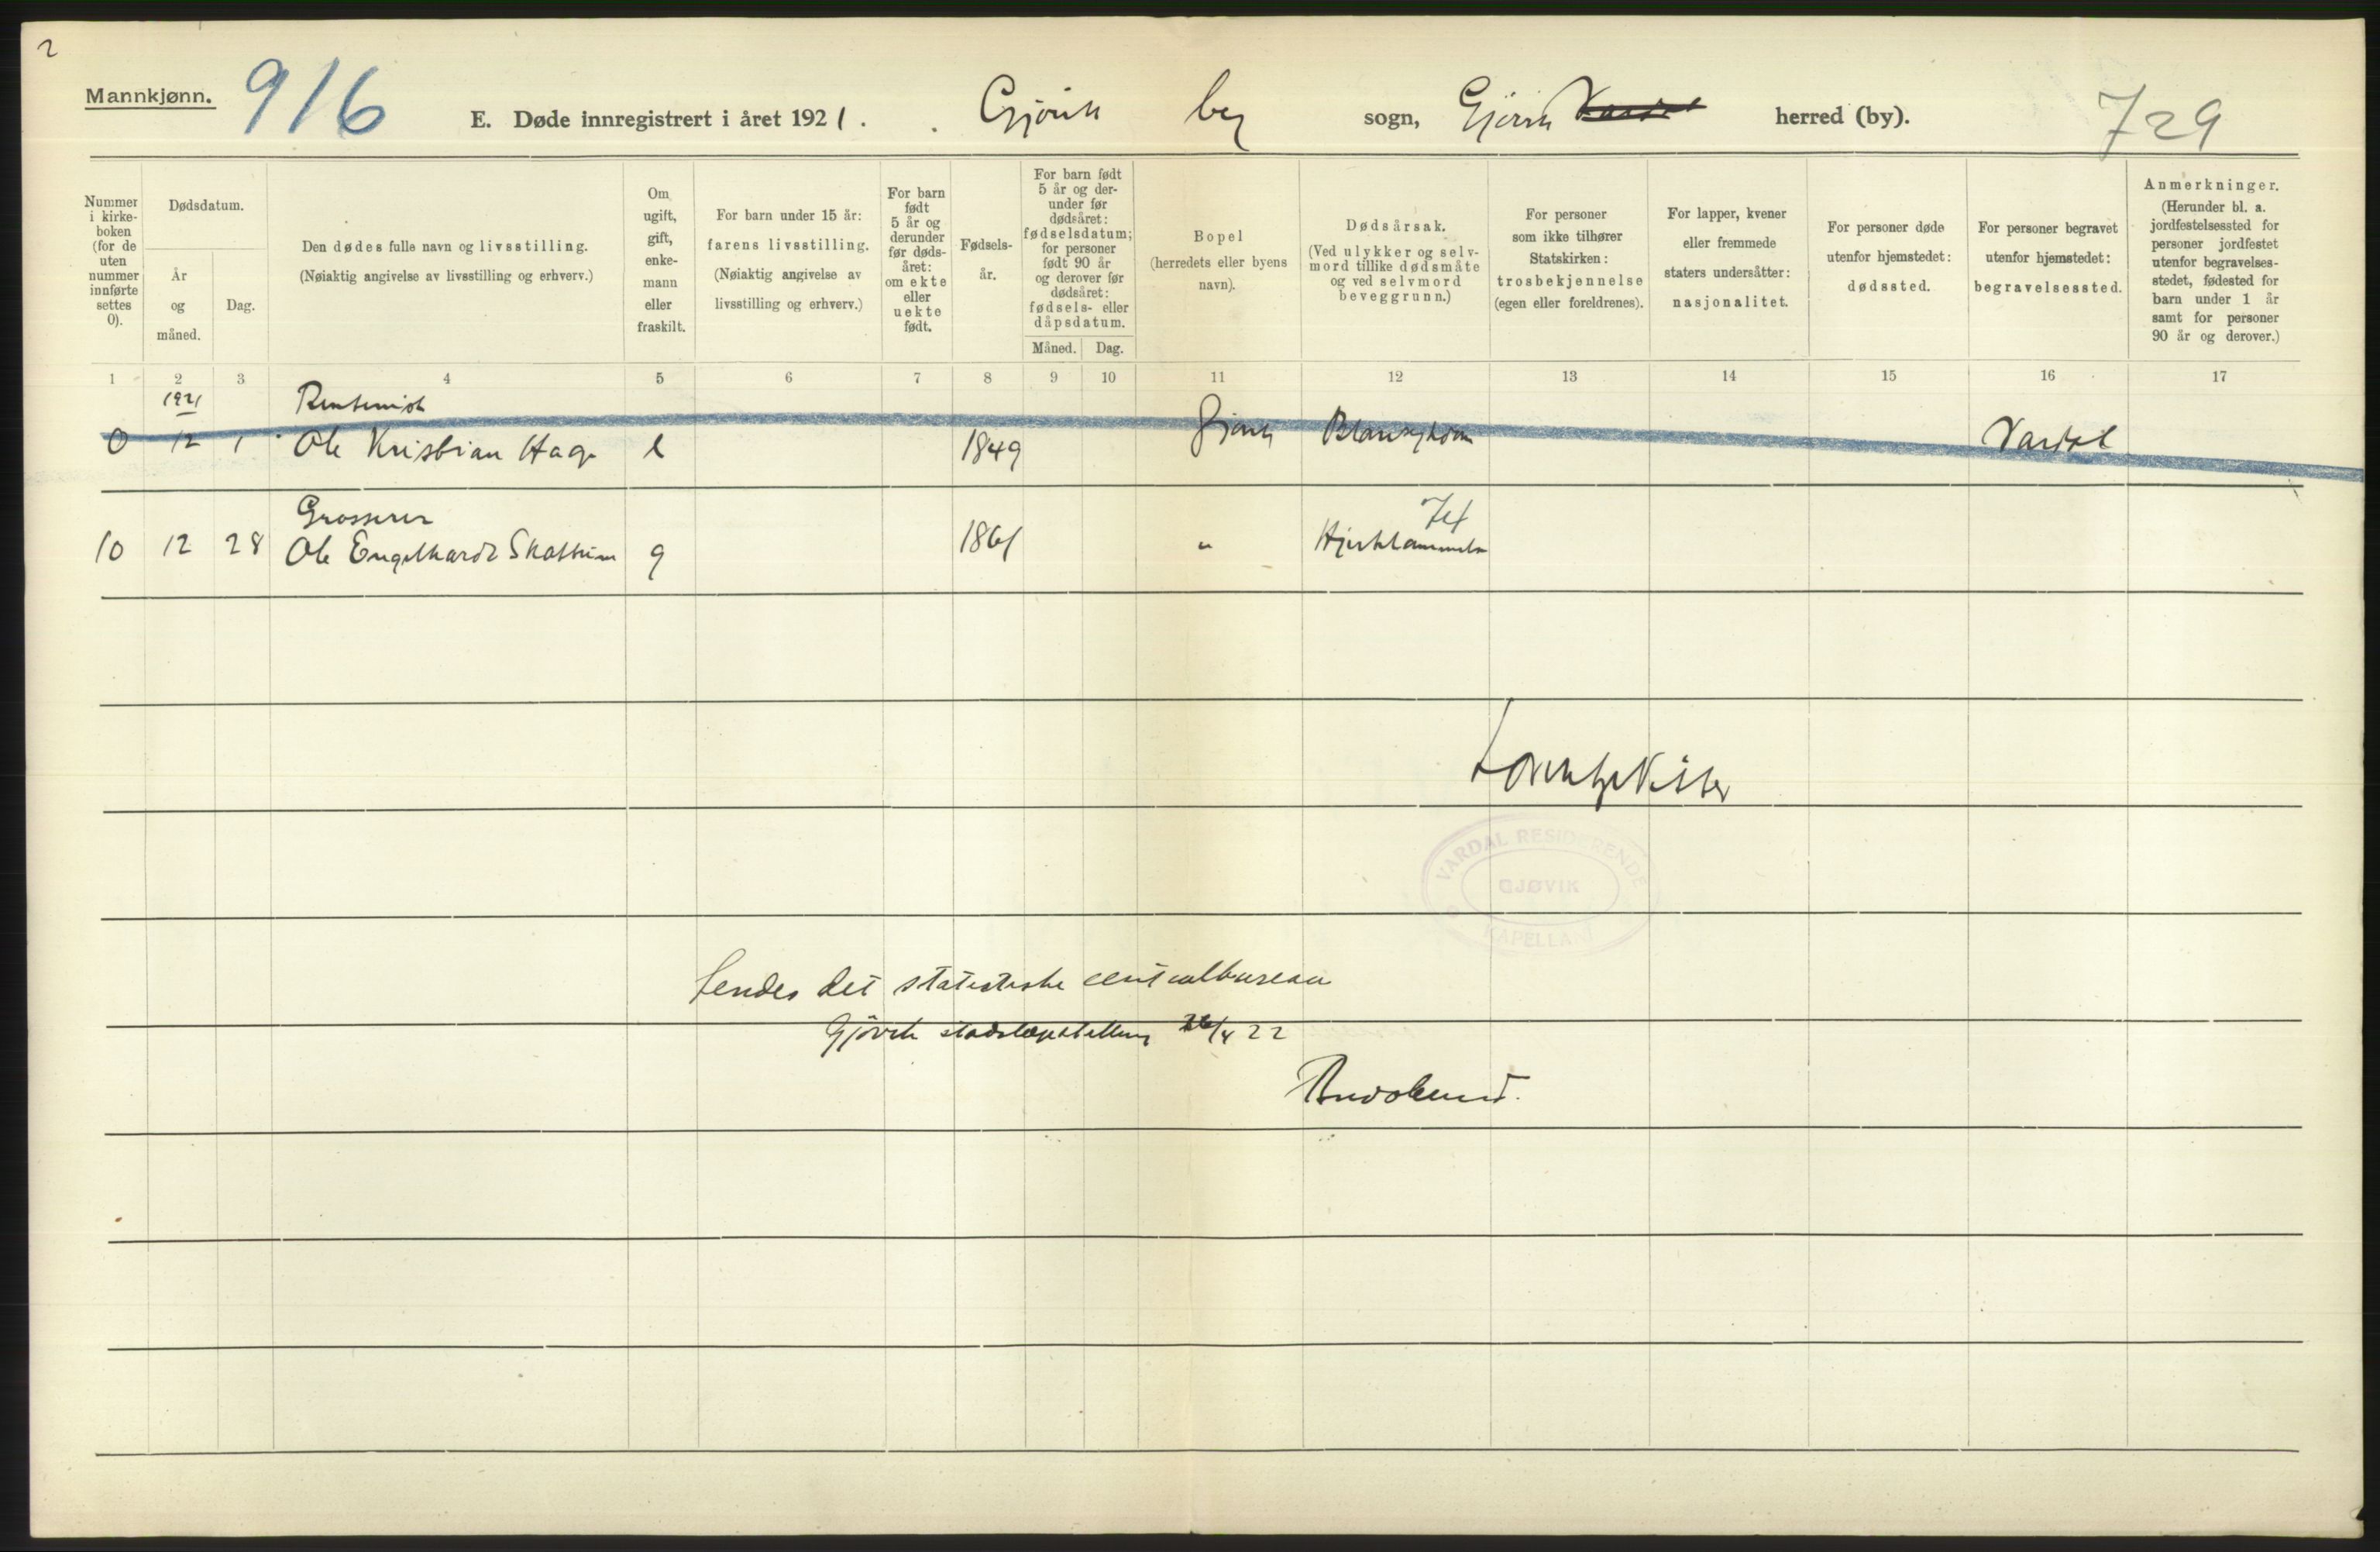 2
Mannkjønn. 916 E. Døde innregistrert i året 1921. Gjøvik by sogn, Gjøvik Vardal herred (by). 729
Nummer i kirkeboken (for de uten nummer innførte settes 0).
Dødsdatum.
År og måned.
Dag.
Den dødes fulle navn og livsstilling.
(Nøiaktig angivelse av livsstilling og erhverv.)
Om ugift, gift, enkemann eller fraskilt.
For barn under 15 år:
farens livsstilling.
(Nøiaktig angivelse av livsstilling og erhverv.)
For barn født 5 år og derunder før dødsåret: om ekte eller uekte født.
Fødselsår.
For barn født 5 år og derunder før dødsåret: fødselsdatum; for personer født 90 år og derover før dødsåret: fødsels- eller dåpsdatum.
Måned. Dag.
Bopel
(herredets eller byens navn).
Dødsårsak.
(Ved ulykker og selvmord tillike dødsmåte og ved selvmord beveggrunn.)
For personer som ikke tilhører Statskirken: trosbekjennelse (egen eller foreldrenes).
For lapper, kvener eller fremmede staters undersåtter: nasjonalitet.
For personer døde utenfor hjemstedet: dødssted.
For personer begravet utenfor hjemstedet: begravelsessted.
Anmerkninger.
(Herunder bl. a. jordfestelsessted for personer jordfestet utenfor begravelsesstedet, fødested for barn under 1 år samt for personer 90 år og derover.)
1 2 3 4 5 6 7 8 9 10 11 12 13 14 15 16 17
1921
0 12 1 Ole Kristian Hage 1849 Gjøvik Vardal
Grosserer
74
10 12 28 Ole Engelhardt g 1861 " Hjerte
VARDAL RESIDERENDE
GJØVIK
KAPELLAN
Sendes det statistiske centralbureau
Gjøvik stadslægestilling 26/4 22